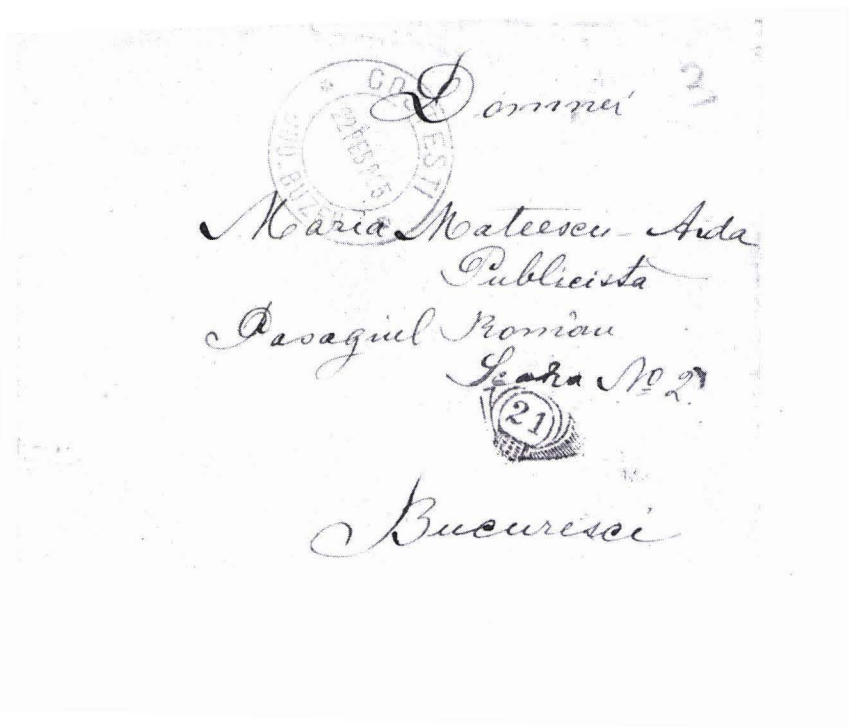 Domnei
Maria Mateescu-Aida
Publicista
Pasagiul Român
Scara No 2
21
Bucuresci
JUD. BUZEU
22 FEB
21